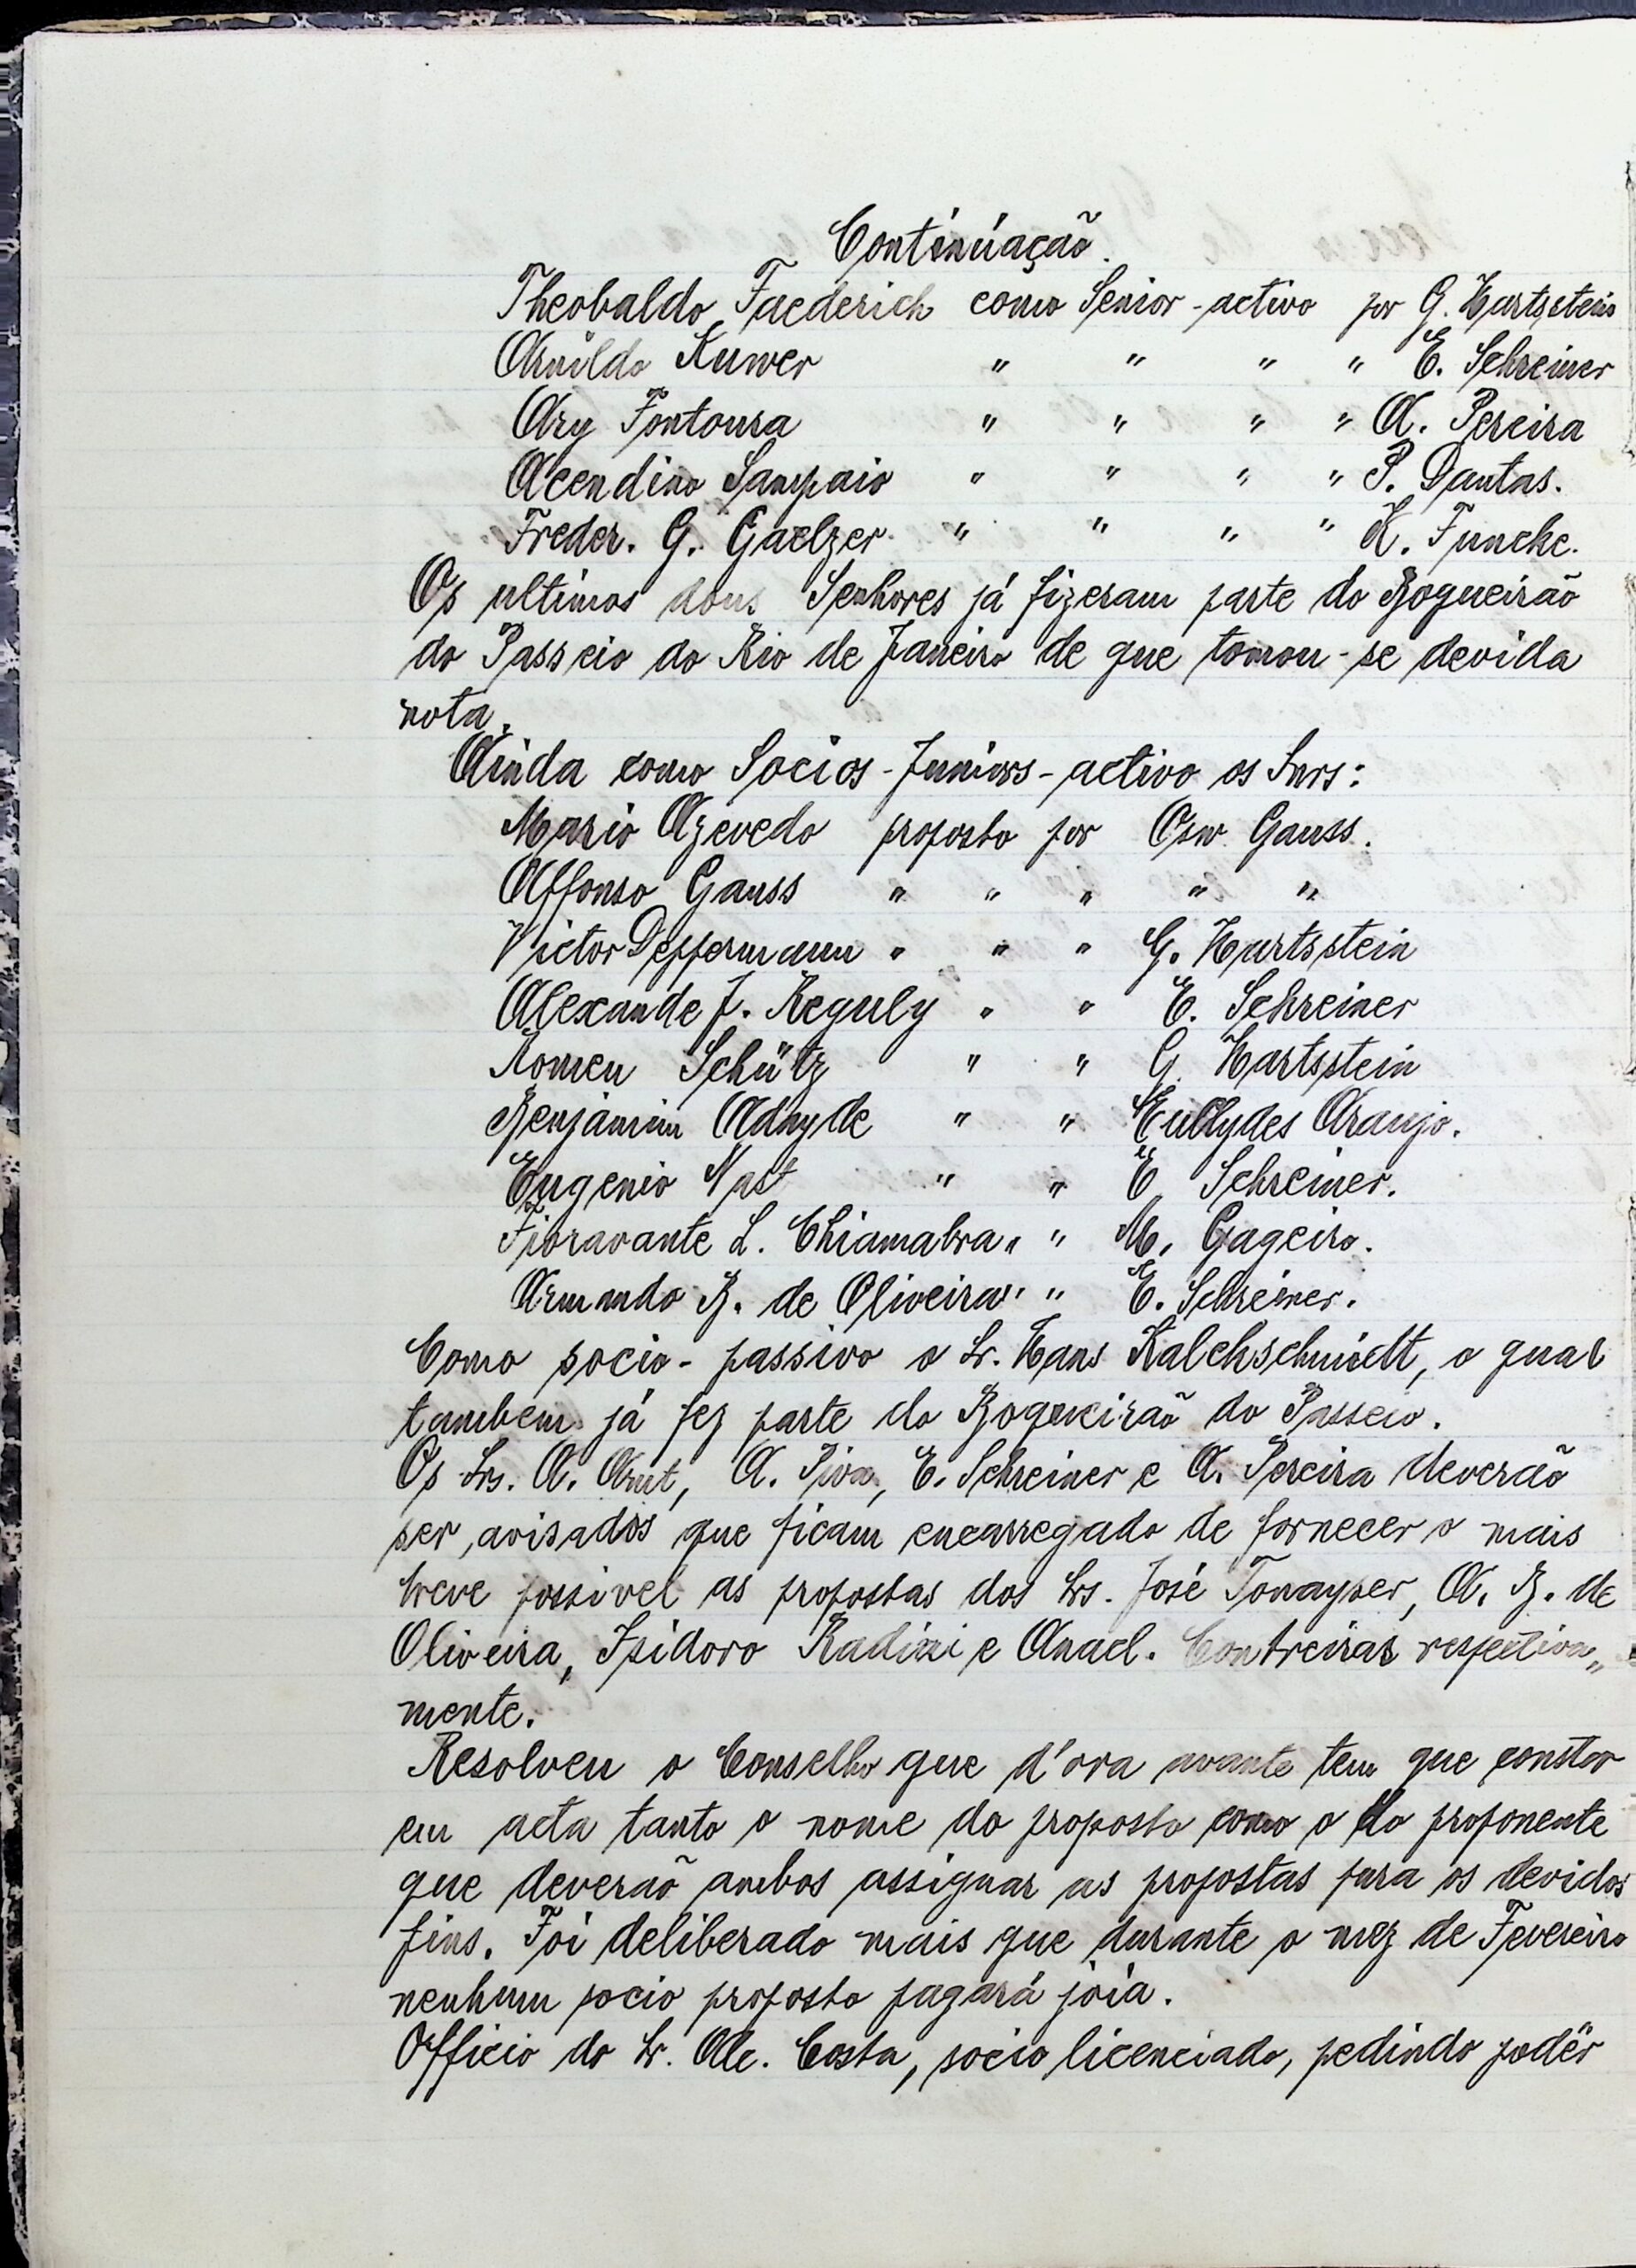 Continúação.
Theobaldo Faederich como Senior-activo por G. Hartsstein
Arnildo Kuwer " " " " E. Schreiner
Ary Fontoura " " " " A. Pereira
Acendino Sampaio " " " " P. Dantas.
Freder. G. Gaelzer " " " " K. Funcke.
Os ultimos dous Senhores já fizeram parte do Boqueirão
do Passeio do Rio de Janeiro de que tomou-se devida
nota.
Ainda como Socios-Juniors-activo os Snrs:
Mario Azevedo proposto por Osw. Gauss.
Affonso Gauss " " " " "
Victor Deppermann " " " G. Hartsstein
Alexande J. Reguly " " E. Schreiner
Romeu Schütz " " G. Hartsstein
Benjamim " " Euclydes Araujo.
Eugenio Nast " " E. Schreiner.
Fioravante L. Chiamabra " " M. Gageiro.
Armando B. de Oliveira " " E. Schreiner.
Como socio-passivo o Sr. Hans Kalchschmidt, o qual
tambem já fez parte do Boqueirão do Passeio.
Os Srs. A. Arnt, A. Piva, E. Schreiner e A. Pereira deverão
ser avisados que ficam encarregado de fornecer o mais
breve possivel as propostas dos Srs. José A. B. de
Oliveira, Isidoro Radini e Anael. Contreiras respectiva„
mente.
Resolveu o Conselho que d'ora avante tem que constar
em acta tanto o nome do proposto como o do proponente
que deverão ambos assignar as propostas para os devidos
fins. Foi deliberado mais que durante o mez de Fevereiro
nenhum socio proposto pagará joia.
Officio do Sr. Alc. Costa, socio licenciado, pedindo podêr